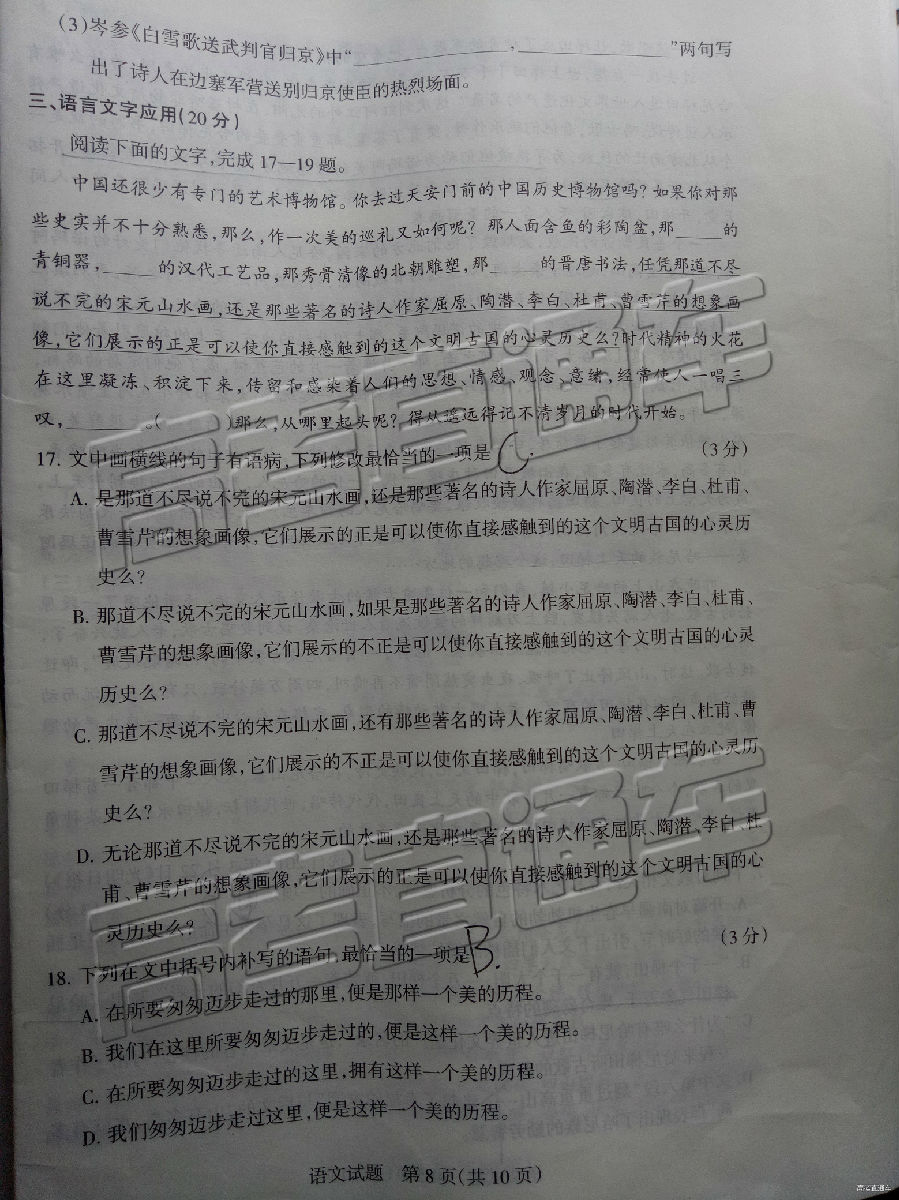 (3)岑参《白雪歌送武判官归京》中“____________,____________”两句写
出了诗人在边塞军营送别归京使臣的热烈场面。
三、语言文字应用(20分)
阅读下面的文字,完成17—19题。
中国还很少有专门的艺术博物馆。你去过天安门前的中国历史博物馆吗?如果你对那
些史实并不十分熟悉,那么,作一次美的巡礼又如何呢?那人面含鱼的彩陶盆,那____的
青铜器,____的汉代工艺品,那秀骨清像的北朝雕塑,那____的晋唐书法,任凭那道不尽
说不完的宋元山水画,还是那些著名的诗人作家屈原、陶潜、李白、杜甫、曹雪芹的想象画
像,它们展示的正是可以使你直接感触到的这个文明古国的心灵历史么?时代精神的火花
在这里凝冻、积淀下来,传留和感染着人们的思想、情感、观念、意绪,经常使人一唱三
叹,______。(______)那么,从哪里起头呢?得从遥远得记不清岁月的时代开始。
17. 文中画横线的句子有语病,下列修改最恰当的一项是 C. (3分)
A. 是那道不尽说不完的宋元山水画,还是那些著名的诗人作家屈原、陶潜、李白、杜甫、
曹雪芹的想象画像,它们展示的正是可以使你直接感触到的这个文明古国的心灵历
史么?
B. 那道不尽说不完的宋元山水画,如果是那些著名的诗人作家屈原、陶潜、李白、杜甫、
曹雪芹的想象画像,它们展示的不正是可以使你直接感触到的这个文明古国的心灵
历史么?
C. 那道不尽说不完的宋元山水画,还有那些著名的诗人作家屈原、陶潜、李白、杜甫、曹
雪芹的想象画像,它们展示的不正是可以使你直接感触到的这个文明古国的心灵历
史么?
D. 无论那道不尽说不完的宋元山水画,还是那些著名的诗人作家屈原、陶潜、李白、杜
甫、曹雪芹的想象画像,它们展示的正是可以使你直接感触到的这个文明古国的心
灵历史么?
18. 下列在文中括号内补写的语句,最恰当的一项是 B. (3分)
A. 在所要匆匆迈步走过的那里,便是那样一个美的历程。
B. 我们在这里所要匆匆迈步走过的,便是这样一个美的历程。
C. 在所要匆匆迈步走过的这里,拥有这样一个美的历程。
D. 我们匆匆迈步走过这里,便是这样一个美的历程。
语文试题 第8页(共10页)
高考直通车
高考直通车
高考直通车